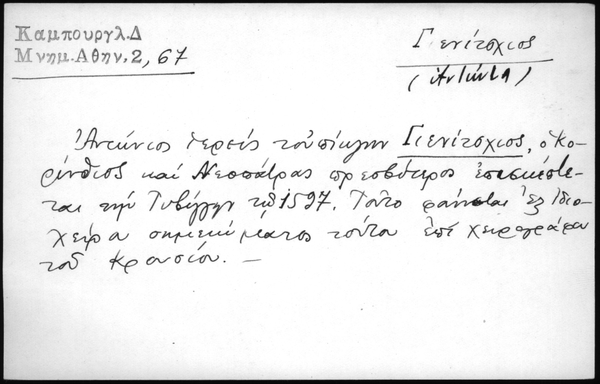 Καμπουργλ.Δ
Μνημ.Αθην.2, 67
Γιενίτσχιος
(Αντώνιος)
Ἀντώνιος ἱερεύς τοὐπίκλην Γιενίτσχιος, ὁ Κο-
ρίνθιος καί Νεοπάτρας πρεσβύτερος ἐπεσκέπτε-
ται τήν Τυβίγγην τῷ 1597. Τοῦτο φαίνεται ἐξ ἰδιο-
χείρου σημειώματος τούτου ἐπί χειρογράφου
τοῦ Κρουσίου. —